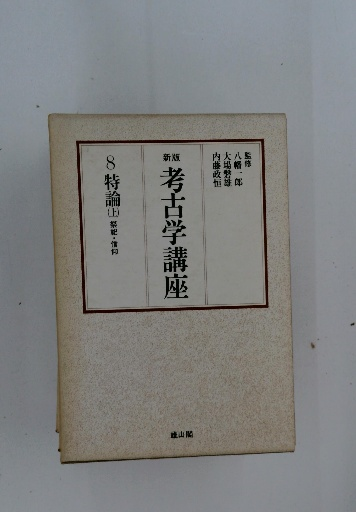 監修
八幡一郎
大場磐雄
内藤政恒
新版
考古学講座
8 特論(上) 祭祀・信仰
雄山閣